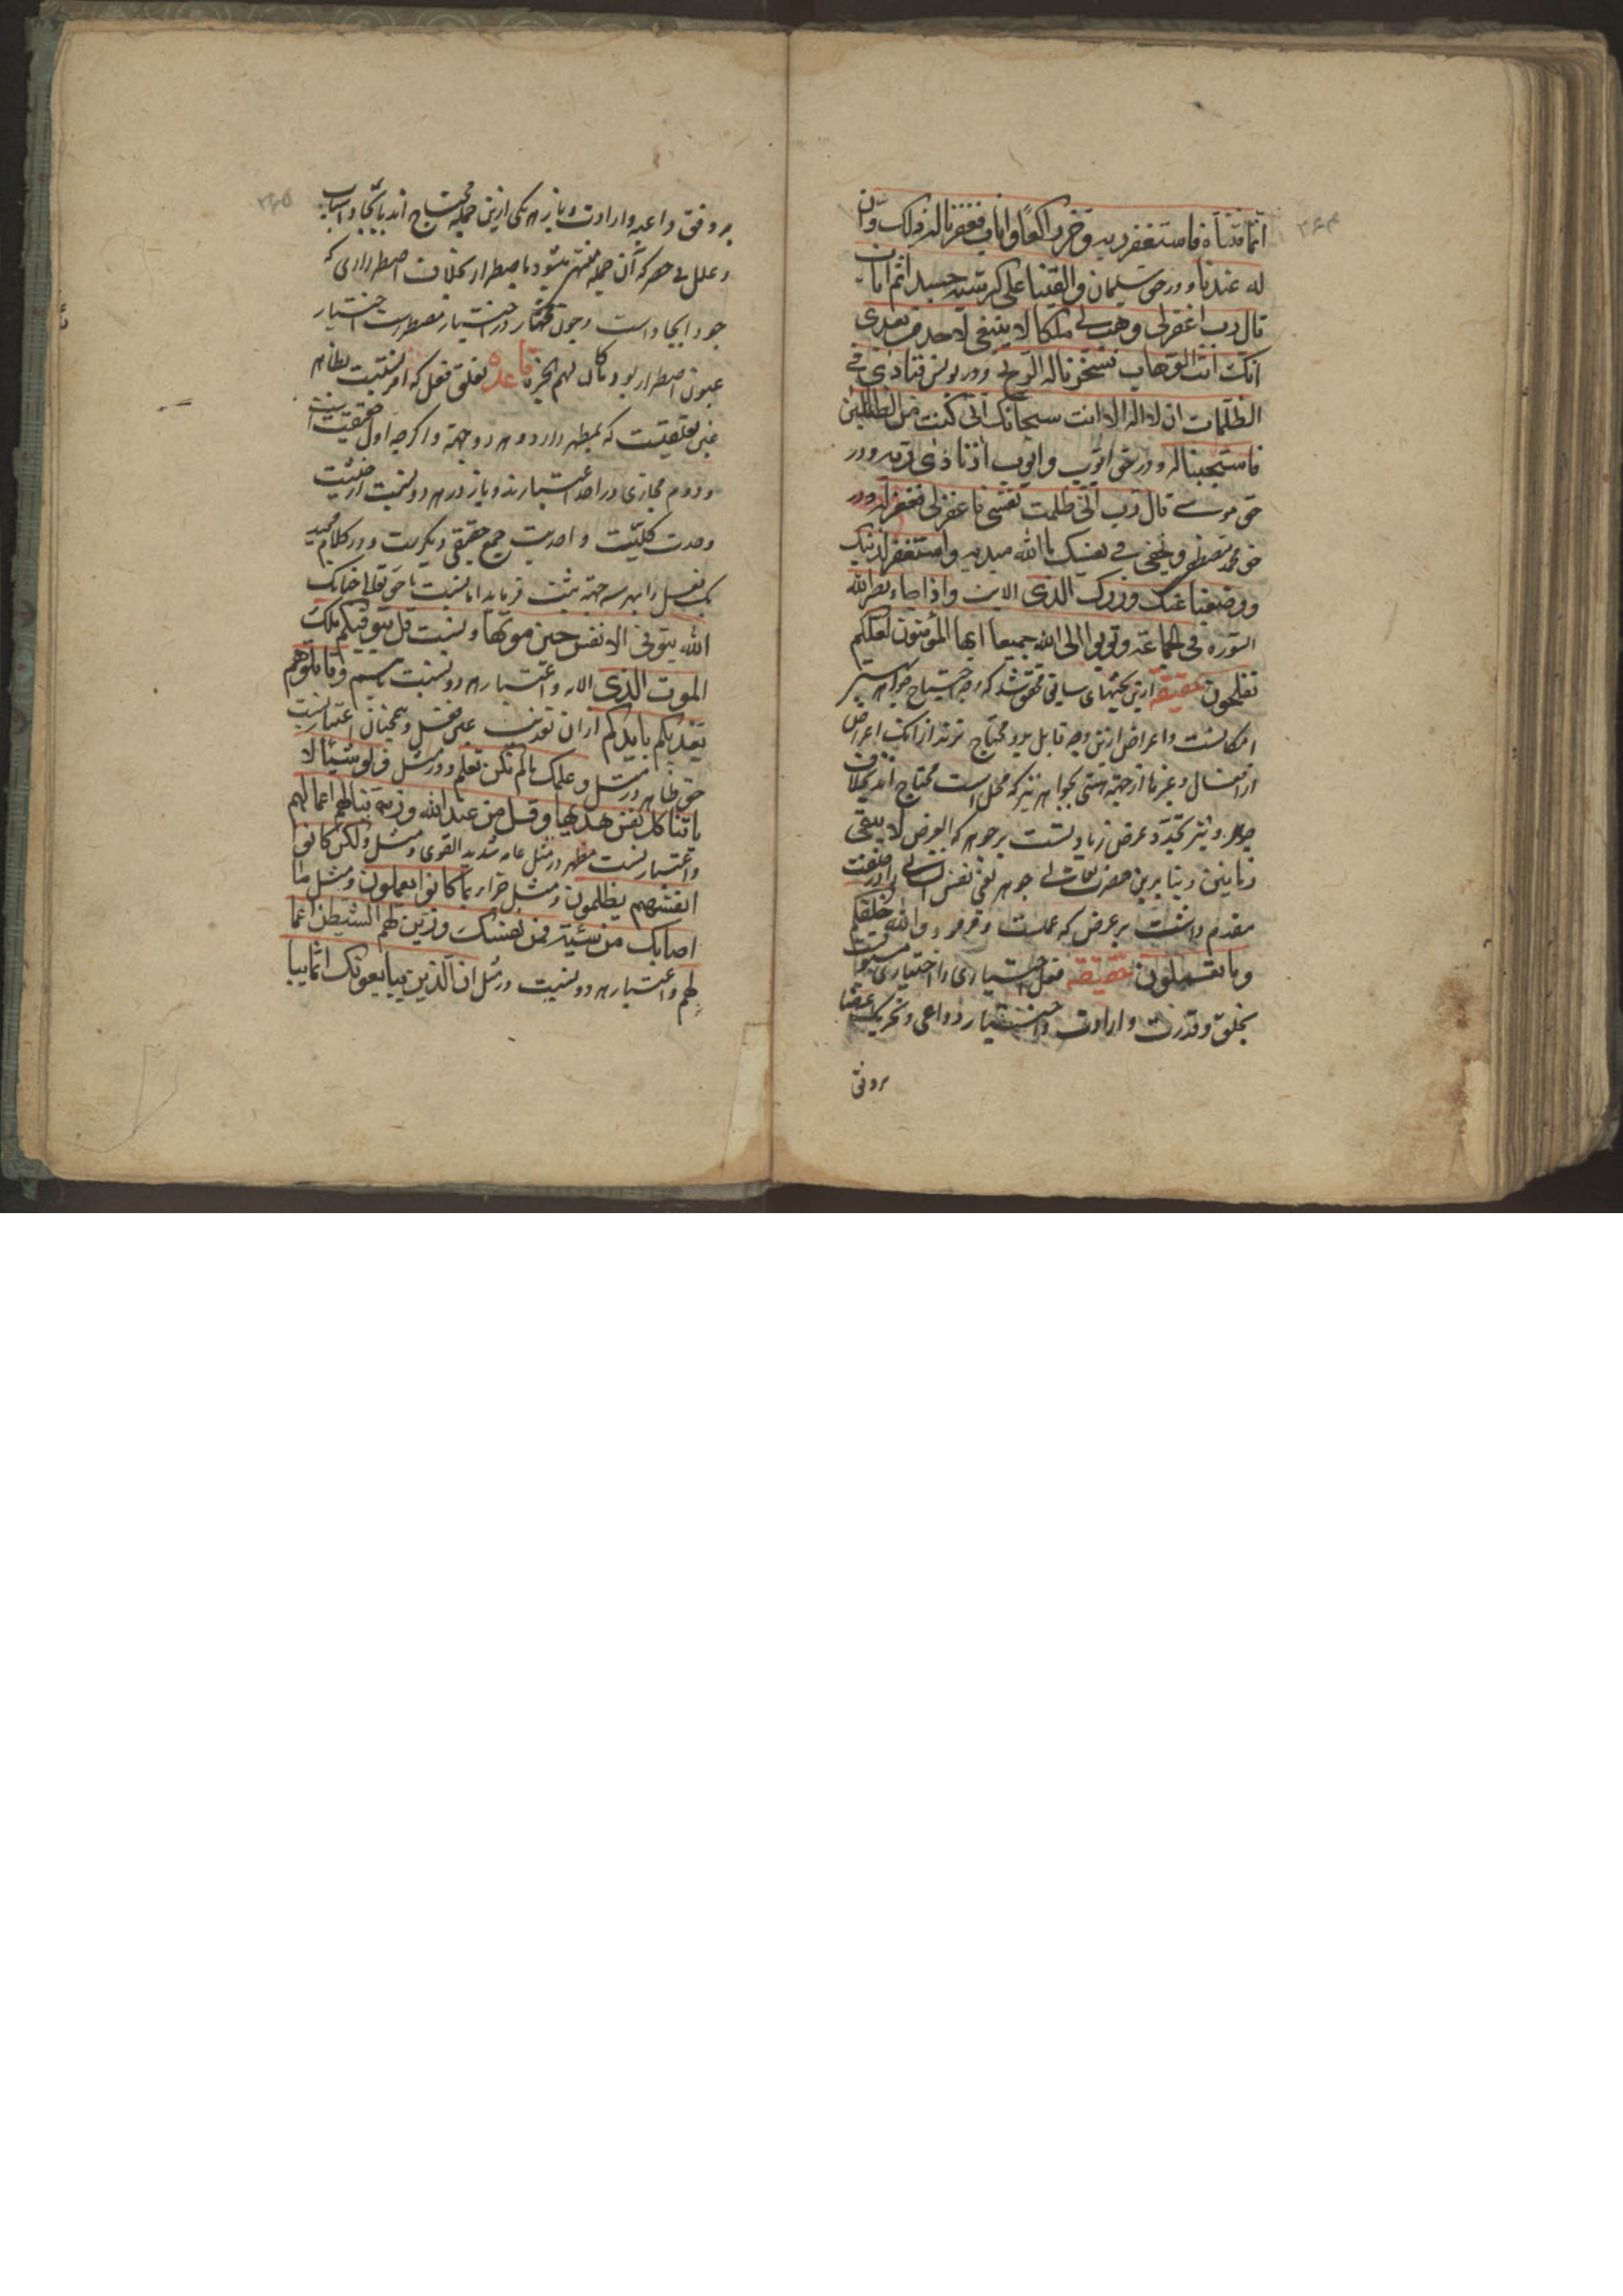 ۲۶۴
انما فتناه فاستغفر ربه وخر راکعا واناب فغفرنا له ذلک وان
له عندنا ودر حق سلیمان والقینا علی کرسیه جسدا ثم اناب
قال رب اغفرلی وهب لی ملکا لا ینبغی لاحد من بعدی
انک انت الوهاب فسخرنا له الریح ودر یونس فنادی فی
الظلمات ان لا اله الا انت سبحانک انی کنت من الظالمین
فاستجبنا له ودر حق ایوب وایوب اذ نادی ربه ودر
حق موسی قال رب انی ظلمت نفسی فاغفرلی فغفر له ودر
حق محمد مصطفی وتخفی فی نفسک ما الله مبدیه واستغفر لذنبک
ووضعنا عنک وزرک الذی الایه واذا جاء نصر الله
السوره وتوبوا الی الله جمیعا ایها المؤمنون لعلکم
تفلحون حقیقة ازین بحثهای سابق محقق شد که وجه احتیاج جواهر
امکانست واعراض ازین وجه قابل بود محتاج ترند از آنک اعراض
از افعال وغیرها از جهة هستی بجواهر نیز که محل است محتاج اند بخلاف
جواهر ونیز تجدد عرض زیادتست بر جوهر که العرض لا یبقی
زمانین وبنابرین حضرت جوهر نفس را در خلقت
مقدم داشت بر عرض که عملست وفرمود والله خلقکم
وما تعملون حقیقة فعل اختیاری را اختیاری
بخلق وقدرت وارادت واختیار ودواعی وتحریک اعضا
بروفق
۲۶۵
بر وفق داعیه وارادت وباز هر یکی ازین جمله محتاج اند بایجاد اسباب
وعلل بی حصر که آن جمله منتهی میشود باضطرار بخلاف اضطراری که
خود ایجاد است وچون مختار در اختیار مضطرست اختیار
عین اضطرار بود وما کان لهم الخیرة قاعده تعلق فعل که امر نسبیست بظاهر
غیر تعلقیست که بمظهر دارد وهر دو جهة واگرچه اول حقیقیست
ودوم مجازی در اصل اعتبارند وباز در هر دو نسبت از حیثیت
وحدت کلیت واحدیت جمع حقیقی دیگرست ودر کلام مجید
یک فعل را بهر سه جهة مثبت فرماید اما نسبت با حق تعالی چنانک
الله یتوفی الانفس حین موتها ونسبت قل یتوفیکم ملک
الموت الذی الایه واعتبار هر دو نسبت باسم وقاتلوهم
یعذبهم الله بایدیکم ازان
حق ظاهر در مثل وعلمک ما لم تکن تعلم ودر مثل فی لو شئنا لا
تینا کل نفس هدیها وقل من عند الله وزینا لهم اعمالهم
واعتبار نسبت مظهر در مثل علمه شدید القوی ومثل ولکن کانوا
انفسهم یظلمون ومثل جزاء بما کانوا یعملون ومثل ما
اصابک من سیئة فمن نفسک وزین لهم الشیطن اعما
لهم واعتبار هر دو نسبت در مثل ان الذین یبایعونک انما یبا